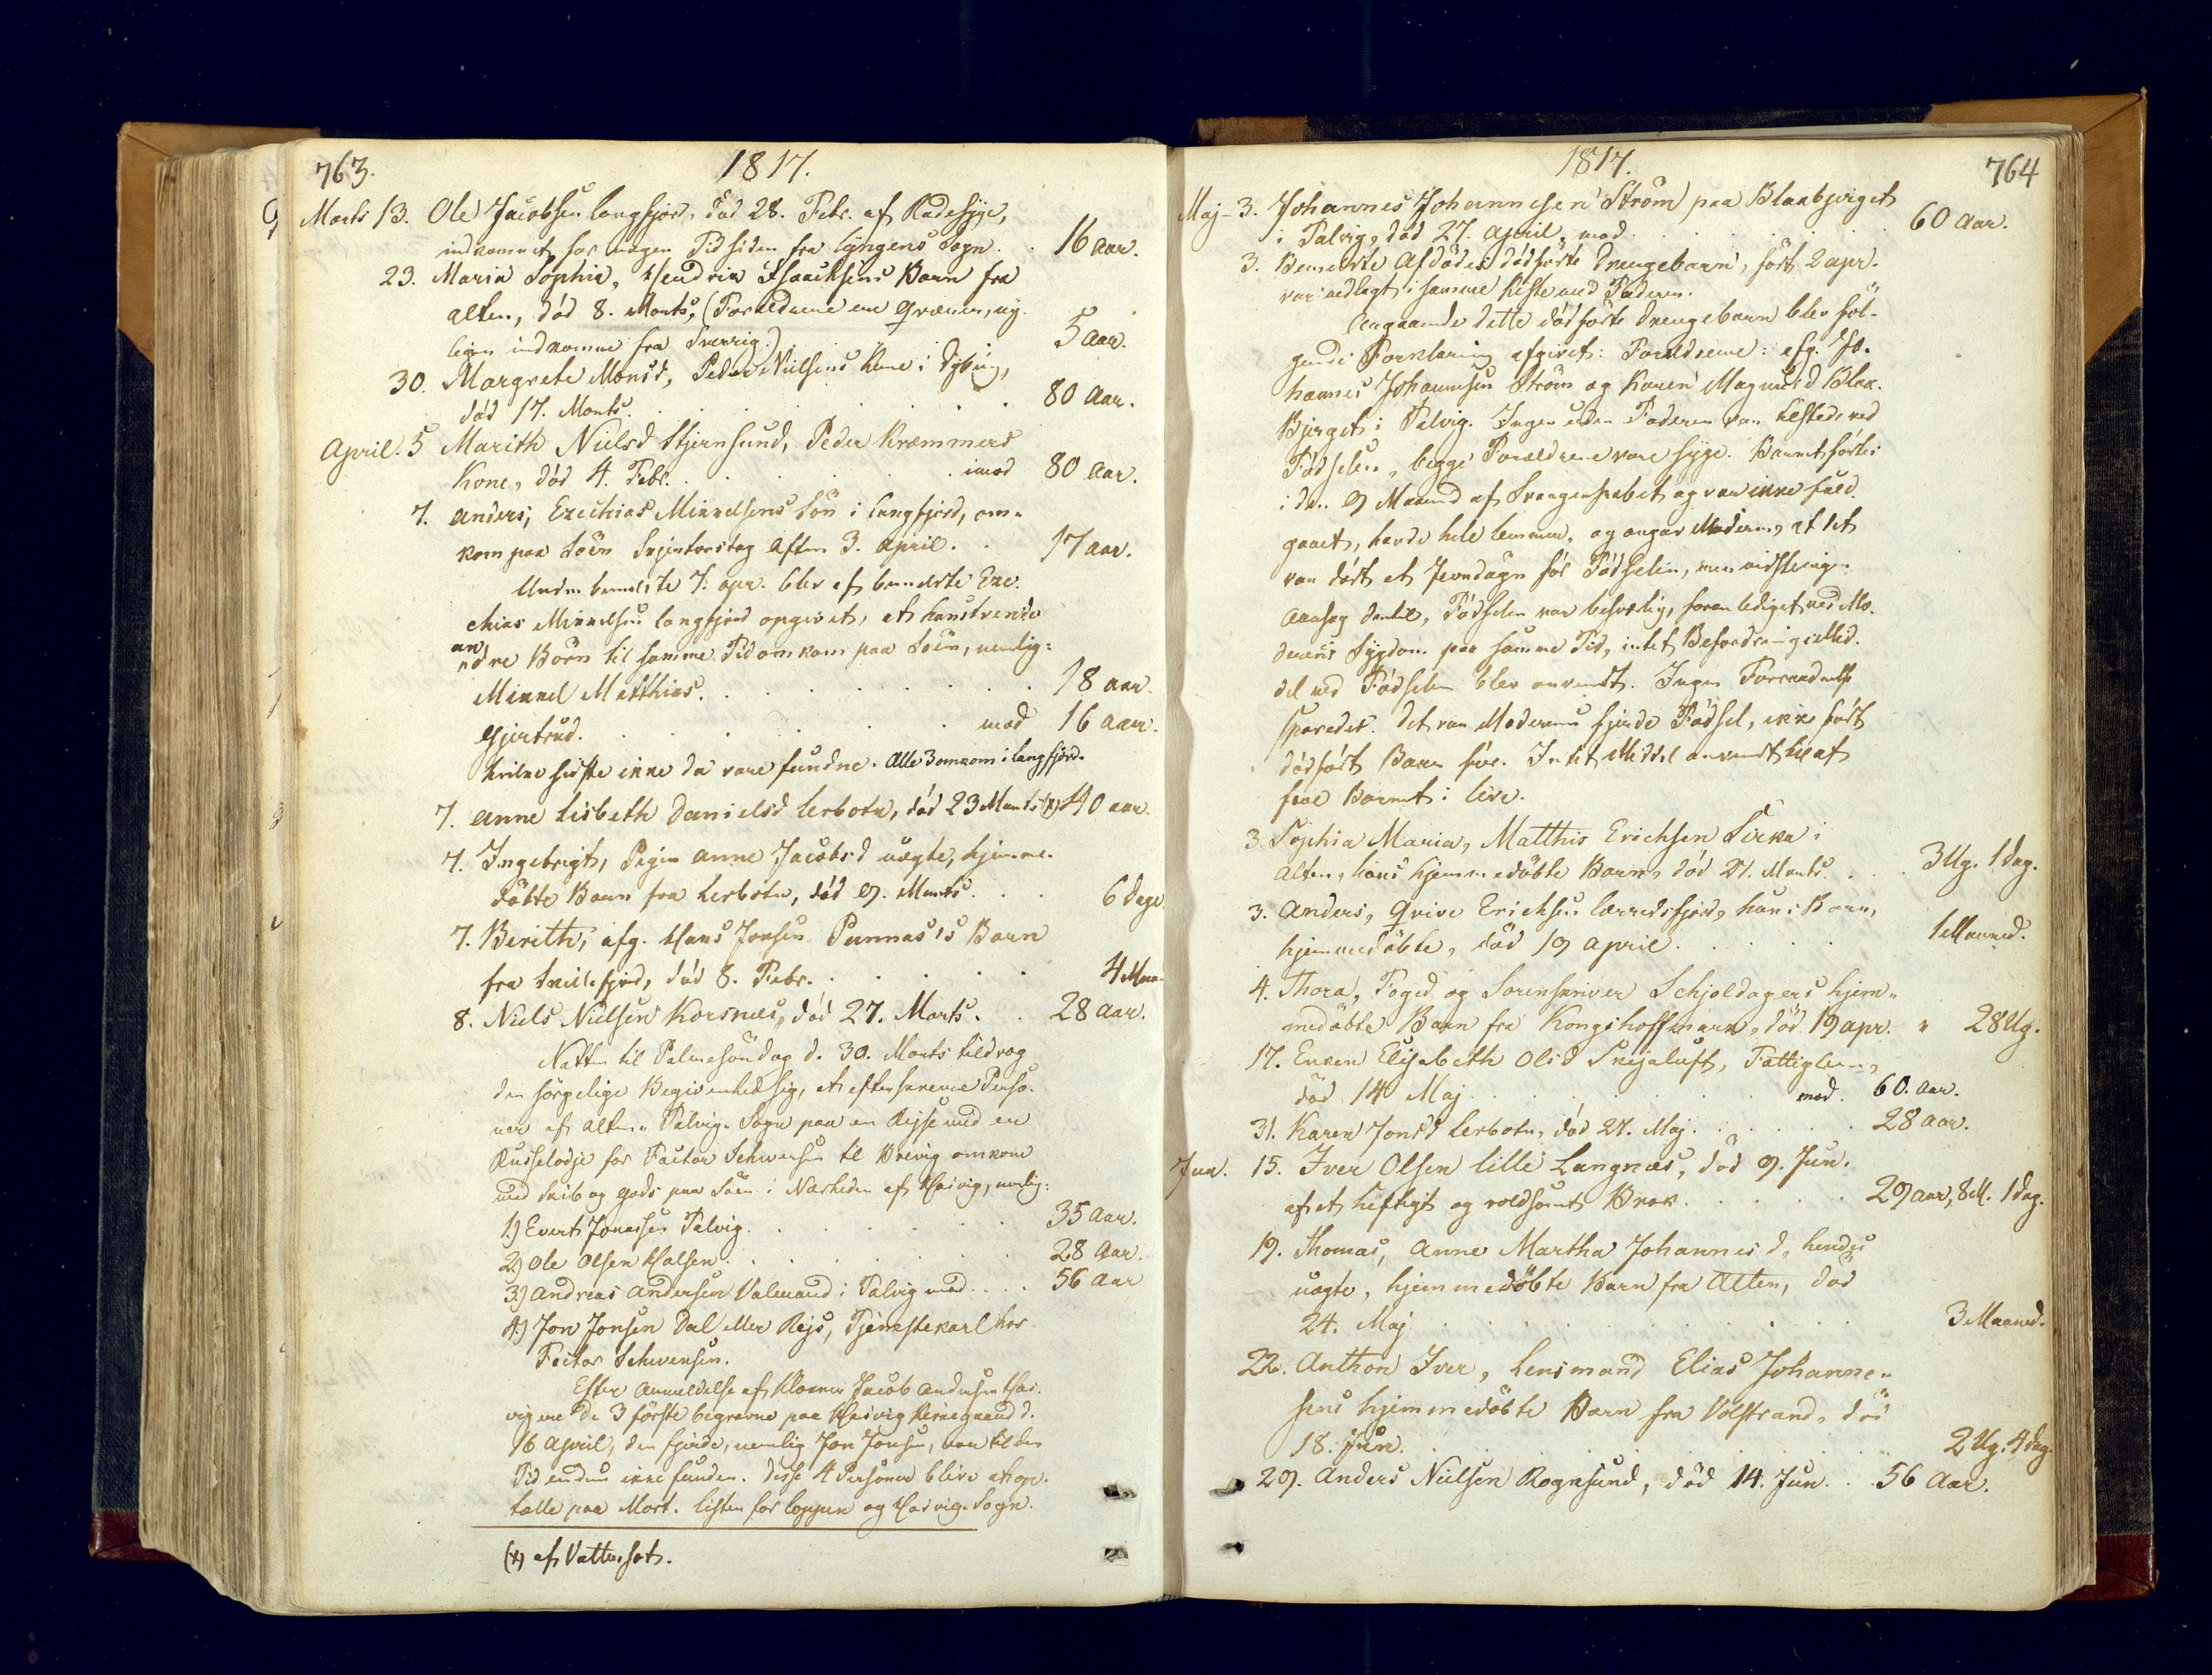 763.
1817.
Marts 13. Ole Jacobsen Langfjord, död 28. Febr. af Radesyge,
indkommet for nogen Tid siden fra Lyngens Sogn. . 16 Aar.
23. Maria Sophia, Hendrik Isaachsens Barn fra
Alten, död 8. Marts, (Forældrene ere Qvæner, ny-
ligen indkomne fra Sverrig.) 5 Aar.
30. Margrete Monsd, Peder Nielsens Kone i
död 17. Marts. 80 Aar.
April. 5 Marith Nielsd Stjernsund, Peder Kræmmers
Kone, död 4. Febr. imod 80 Aar.
7. Anders, Ezechias Mikkelsens Sön i Langfjord, om-
kom paa Söen Skjertorsdag Aften 3. April. . 17 Aar.
Under bemeldte 7. Apr. blev af bemeldte Eze-
chias Mikkelsen Langfjord opgivet, at hans tvende
andre Börn til samme Tid omkom paa Söen, nemlig:
Mikkel Matthias. 18 Aar.
Gjertrud. mod 16 Aar.
hvilke sidste ikke da vare fundne. Alle 3 omkom i Langfjord.
7. Anne Lisbeth Danielsd Lerbotn, död 23 Marts (x) 40 Aar.
7. Ingebrigt, Pigen Anne Jacobsd uægte, hjemme-
döbte Barn fra Lerbotn, död 9. Marts. 6 Dage.
7. Berith, afg. Hans Jonsen Punnas's Barn
fra död 8. Febr. 4 Maa-
8. Niels Nielsen Korsnæs, död 27. Marts. . 28 Aar.
Natten til Palmesöndag d. 30. Marts tildrog
den sörgelige Begivenhed sig, at efterskrevne Perso-
ner af Alten-Talvig-Sogn paa en Rejse med en
Russelodje for Factor Schwensen til Brevig omkom
med Skib og Gods paa Söen i Nærheden af Hasvig, nemlig:
1.) Evert Jonassen Talvig. 35 Aar.
2.) Ole Olsen Halsen. 28 Aar.
3.) Andreas Andersen Valmand i Talvig mod 56 Aar
4.) Jon Jonsen Dal eller Rejs, Tjenestekarl hos
Factor Schwensen.
Efter Anmeldelse af Klokker Jacob Andersen Has-
vig ere de 3 förste begravne paa Hasvig Kirkegaard d.
16 April, den fjerde, nemlig Jon Jonsen, var til den
Tid endnu ikke funden. Disse 4 Personer blive at op-
tælle paa Mort. Listen for Loppen og Hasvig-Sogn.
(x) af Vattersot.
1817.
764
Maj - 3. Johannes Johannesen Ström paa Blaabjerget
i Talvig, död 27. April, mod 60 Aar.
3. Bemeldte Afdödes dödfödte Drengebarn, födt 2 Apr.
var nedlagt i samme Kiste med Faderen.
Angaaende dette dödfödte Drengebarn blev föl-
gende Forklaring afgivet: Forældrene: afg. Jo-
hannes Johannsen Ström og Karen Magnusd Blaa-
Bjerget i Talvig. Ingen uden Faderen var tilstede ved
Födselen, begge Forældrene vare syge. Barnet födtes
i den 9 Maaned af Svangerskabet og var ikke fuld-
gaaet, havde hele Lemmer, og angav Moderen, at det
var dödt et Jevndögn för Födselen, men vidste ingen
Aarsag dertil, Födselen var besværlig, foranlediget ved Mo-
derens Sygdom paa samme Tid, intet Befordringsmid-
del ved Födselen blev anvendt. Ingen Forraadnelse
sporedes. Det var Moderens fjerde Födsel, ikke födt
dödfödt Barn för. Intet Middel anvendt til at
faae Barnet i live.
3. Sophia Maria, Matthis Erichsen Sirka i
Alten, hans hjemmedöbte Barn, död 21. Marts. 3 Ug. 1 Dag.
3. Anders, Qvive Erichsen Lerredsfjord, hans Barn,
hjemmedöbte, död 19 April 1 Maaned.
4. Thora, Foged og Sorenskriver Schjoldagers hjem-
medöbte Barn fra Kongshoffmark, död 19 Apr. " 28 Ug.
17. Enken Elisabeth Olsd Fattiglem,
död 14 Maj. mod. 60. Aar.
31. Karen Jonsd Lerbotn, död 27. Maj. 28 Aar.
Jun. 15. Iver Olsen Lille Langnæs, död 9. Jun.
af et heftigt og voldsomt Brok. 29 Aar, 8 M. 1 Dag.
19. Thomas, Anne Martha Johannisd, hendes
uægte, hjemmedöbte Barn fra Alten, död
24. Maj. 3 Maaned.
22. Anthon Iver, Lensmand Elias Johanne-
sens hjemmedöbte Barn fra Volstrand, död
18. Jun. 2 Ug. 4 Dag.
29. Anders Nielsen Rognsund, död 14. Jun. . 56 Aar.